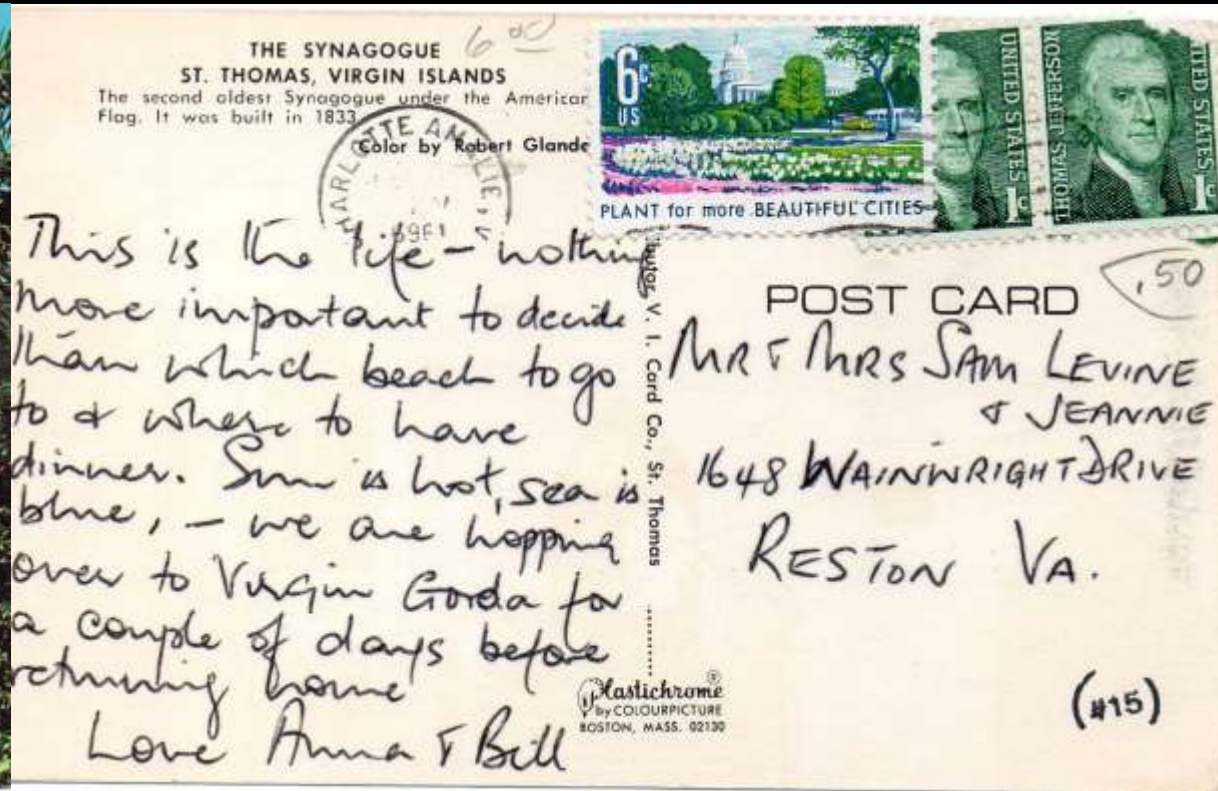 THE SYNAGOGUE
ST. THOMAS, VIRGIN ISLANDS
The second oldest Synagogue under the American
Flag. It was built in 1833
Color by Robert Glande
6 00
HARLOTTE AMALIE, V
6c
US
PLANT for more BEAUTIFUL CITIES
UNITED STATES
1c
THOMAS JEFFERSON
ITED STATES
1c
This is the life - nothing
more important to decide
than which beach to go
to & where to have
dinner. Sun is hot, sea is
blue, - we are hopping
over to Virgin Gorda for
a couple of days before
returning home
Love Anna & Bill
butor, V. I. Card Co., St. Thomas
Plastichrome®
by COLOURPICTURE
BOSTON, MASS. 02130
.50
POST CARD
MR & MRS SAM LEVINE
& JEANNIE
1648 WAINWRIGHT DRIVE
RESTON VA.
(#15)